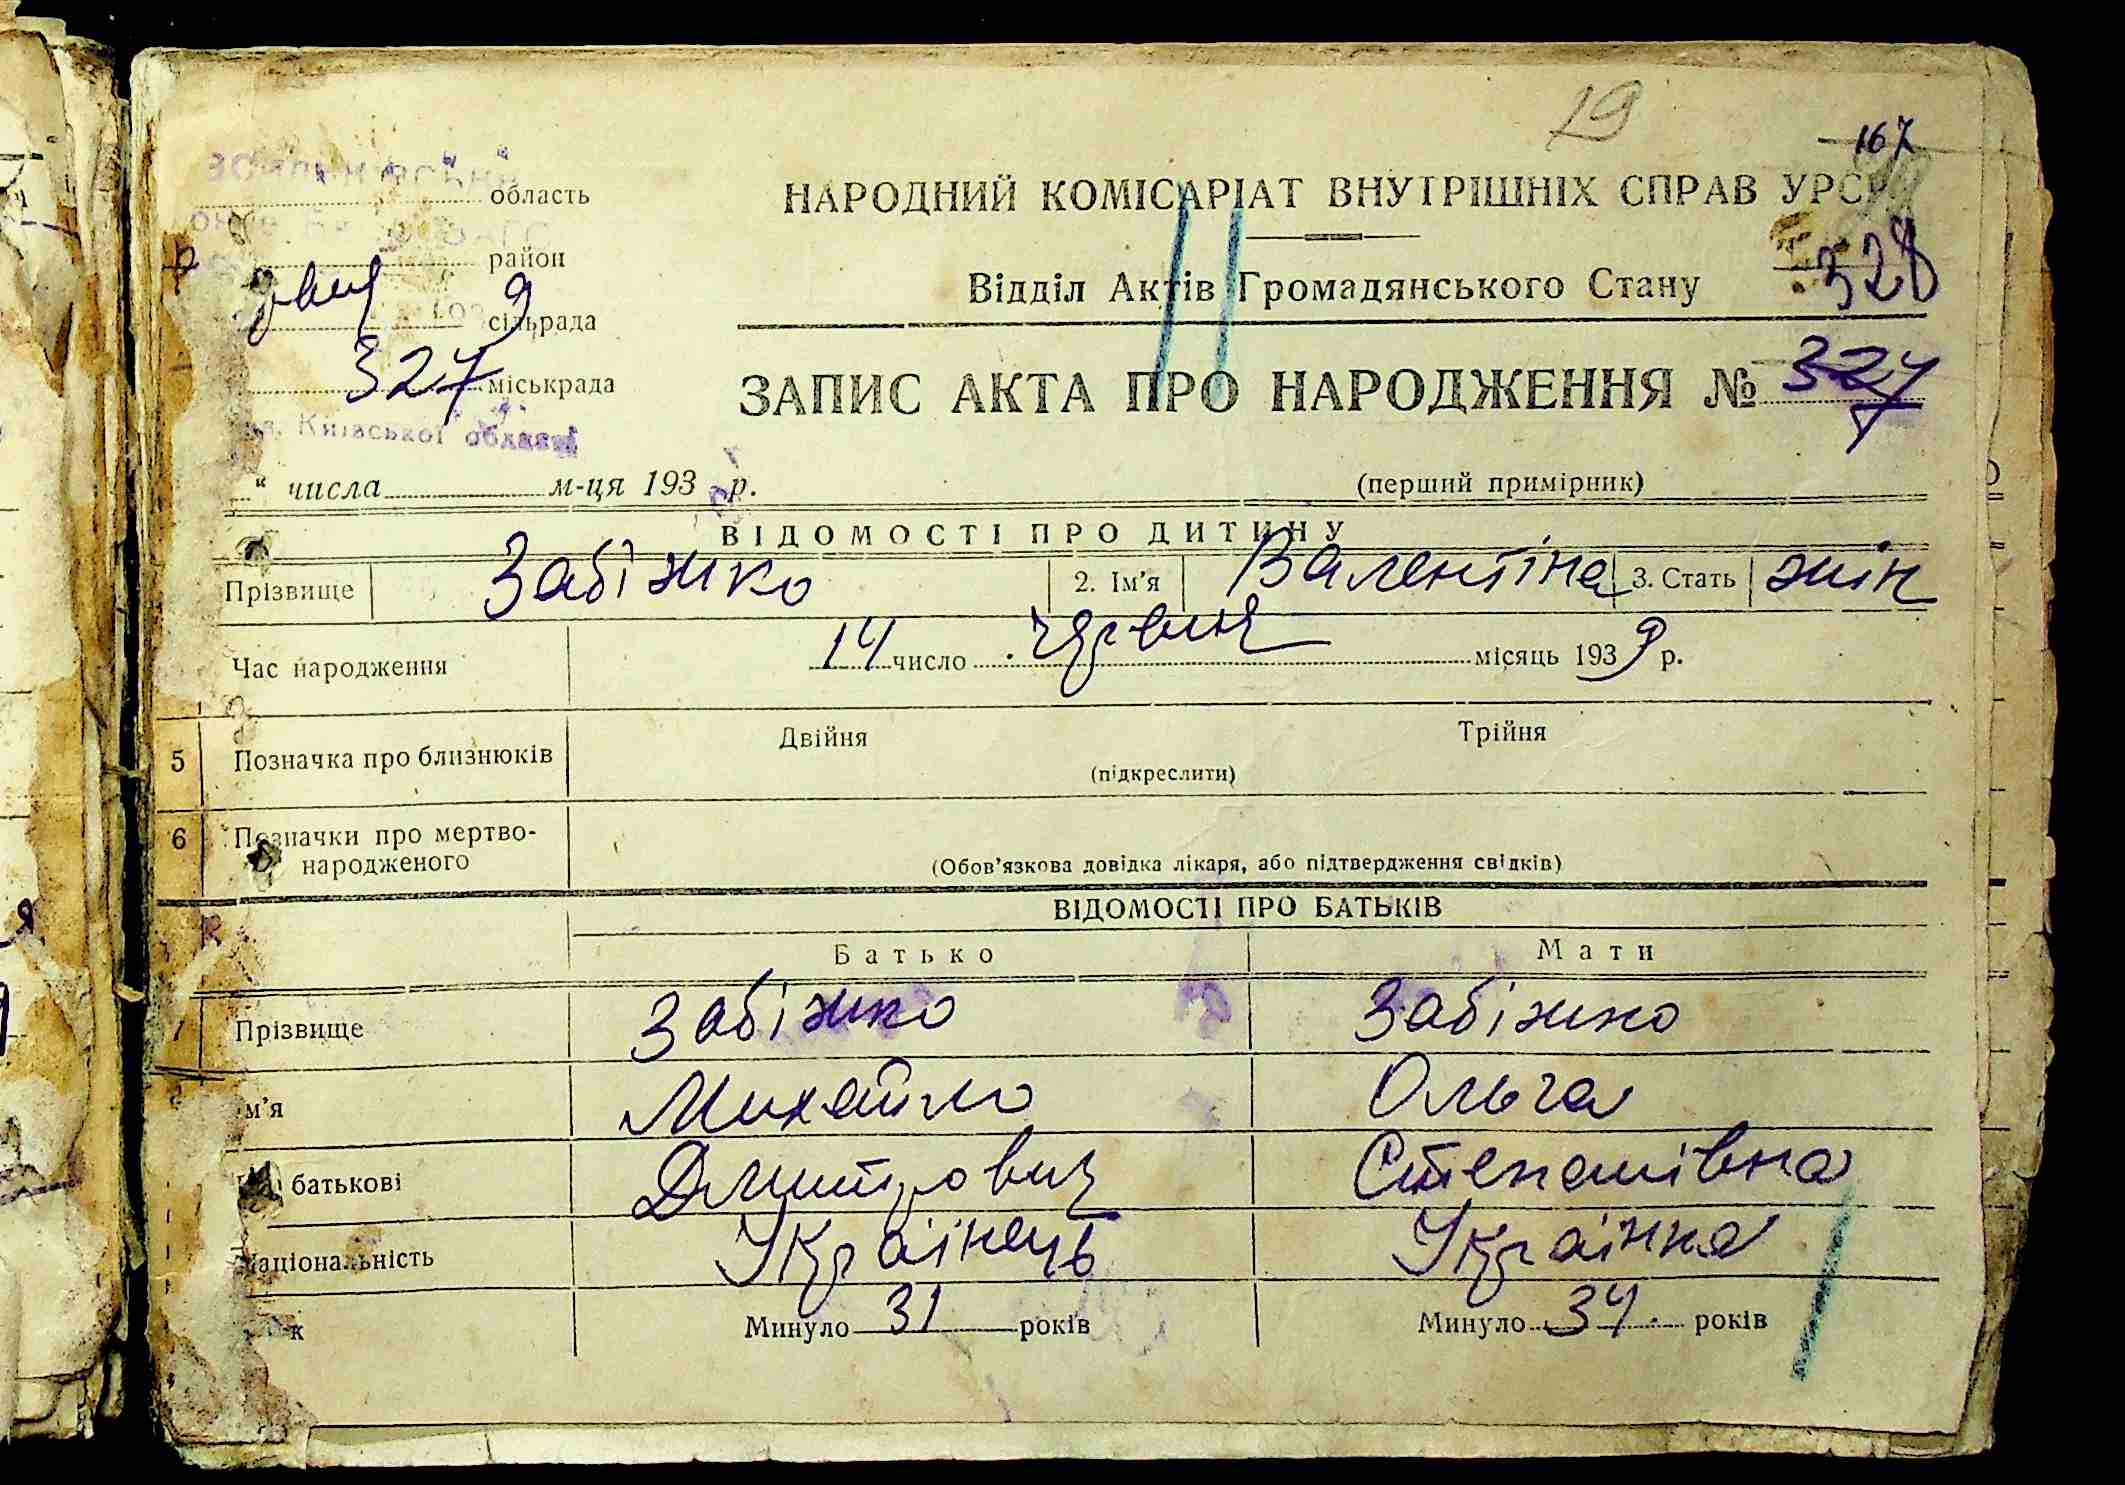 19
167
область
НАРОДНИЙ КОМІСАРІАТ ВНУТРІШНІХ СПРАВ УРСР
район
Відділ Актів Громадянського Стану
328
9
сільрада
327 міськрада
ЗАПИС АКТА ПРО НАРОДЖЕННЯ № 327
Київської області
“ числа м-ця 193 р.
(перший примірник)
ВІДОМОСТІ ПРО ДИТИНУ
Прізвище Забіжко 2. Ім’я Валентіна 3. Стать жін
Час народження 14 число червня місяць 1939 р.
5 Позначка про близнюків Двійня Трійня
(підкреслити)
6 Позначки про мертво-
народженого
(Обов’язкова довідка лікаря, або підтвердження свідків)
ВІДОМОСТІ ПРО БАТЬКІВ
Батько Мати
7 Прізвище Забіжко Забіжко
м’я Михайло Ольга
батькові Дмитрович Степанівна
Національність Українець Українка
к Минуло 31 років Минуло 34 років